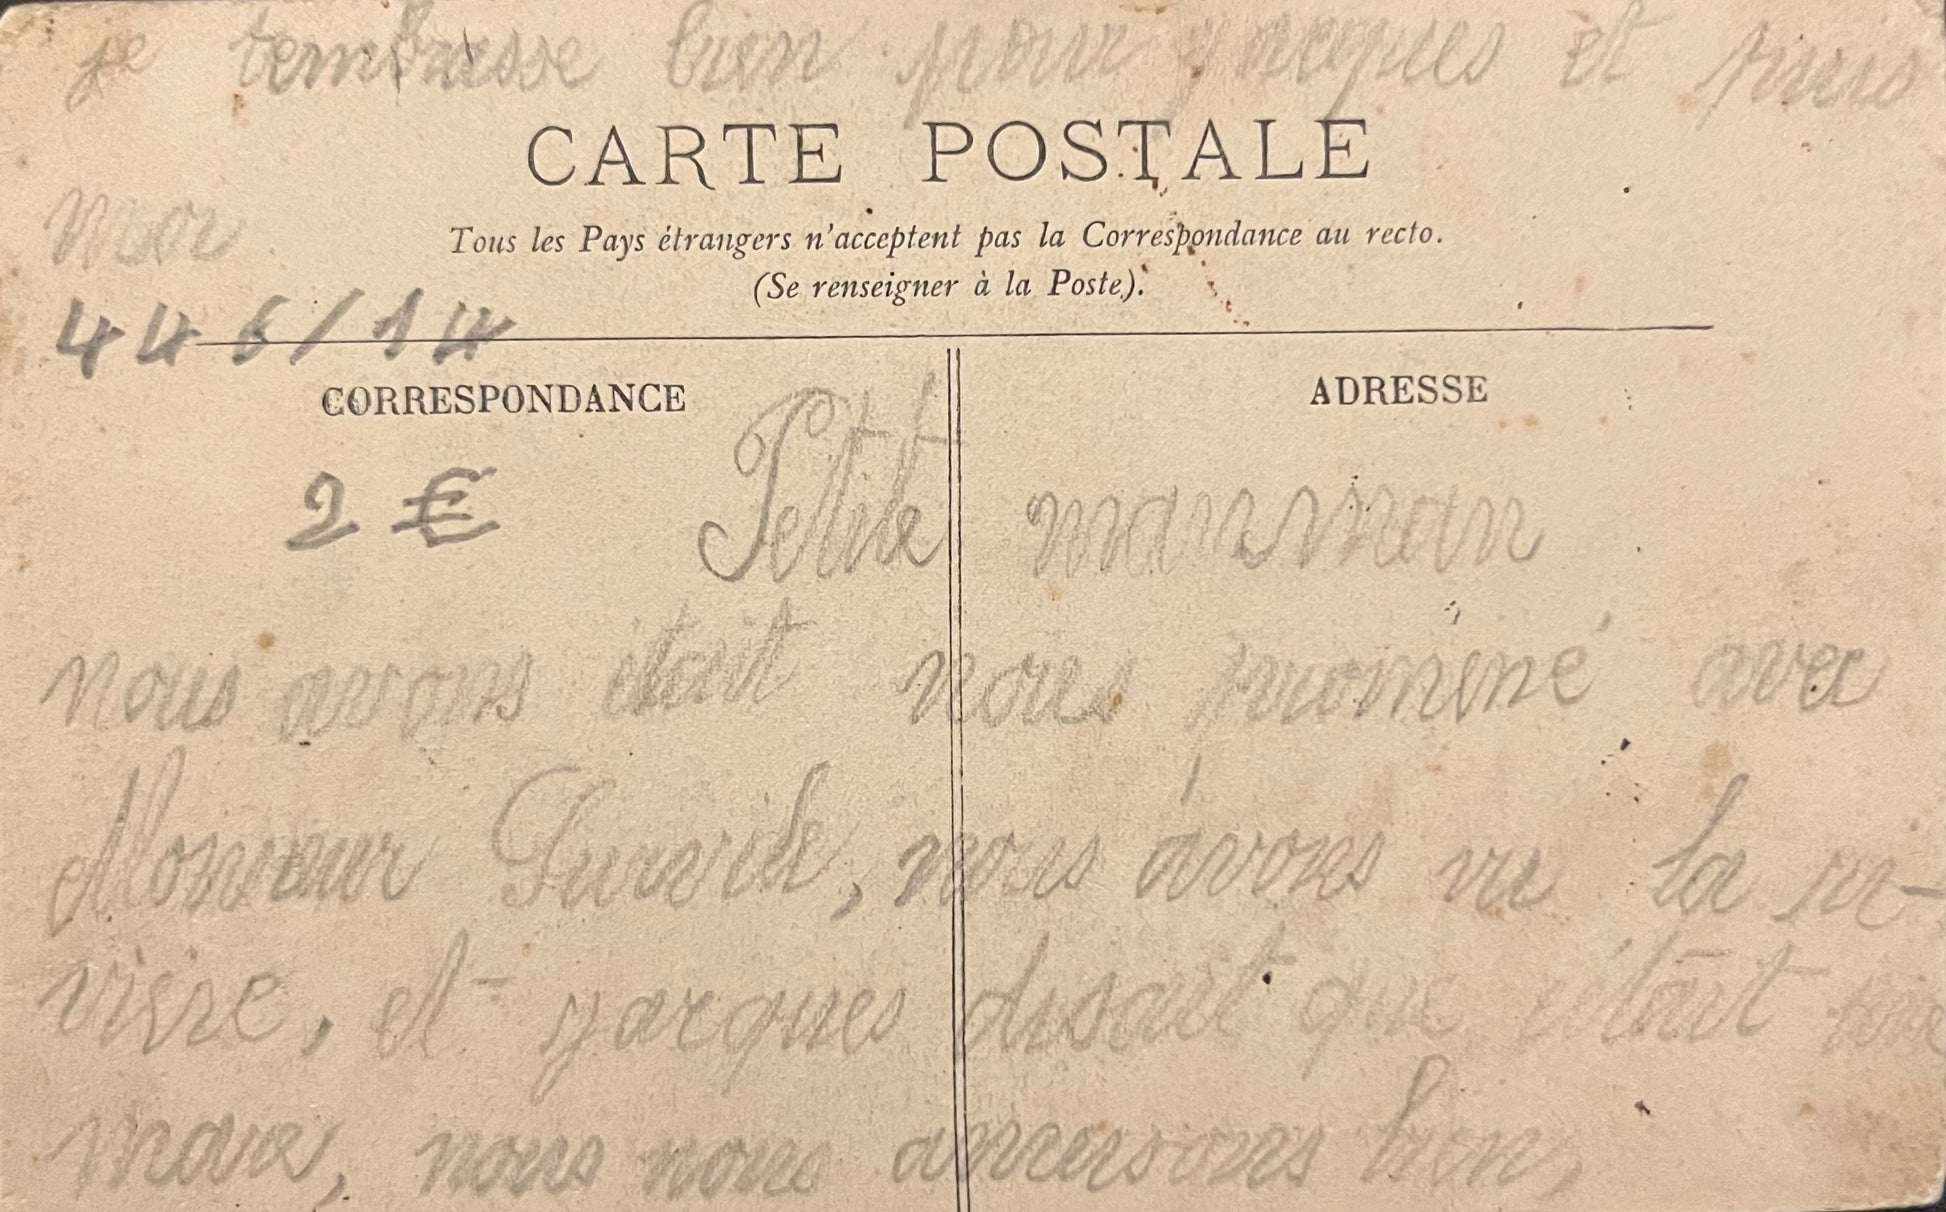 je tembrasse bien pour yacques et puis
moi
CARTE POSTALE
Tous les Pays étrangers n'acceptent pas la Correspondance au recto.
(Se renseigner à la Poste).
446/14
CORRESPONDANCE
ADRESSE
2 €
Petite manman
nous avons était nous promené avec
Monsieur, nous avons vu la ri-
vière, et yacques disait que c'était une
mare, nous nous amusons bien,